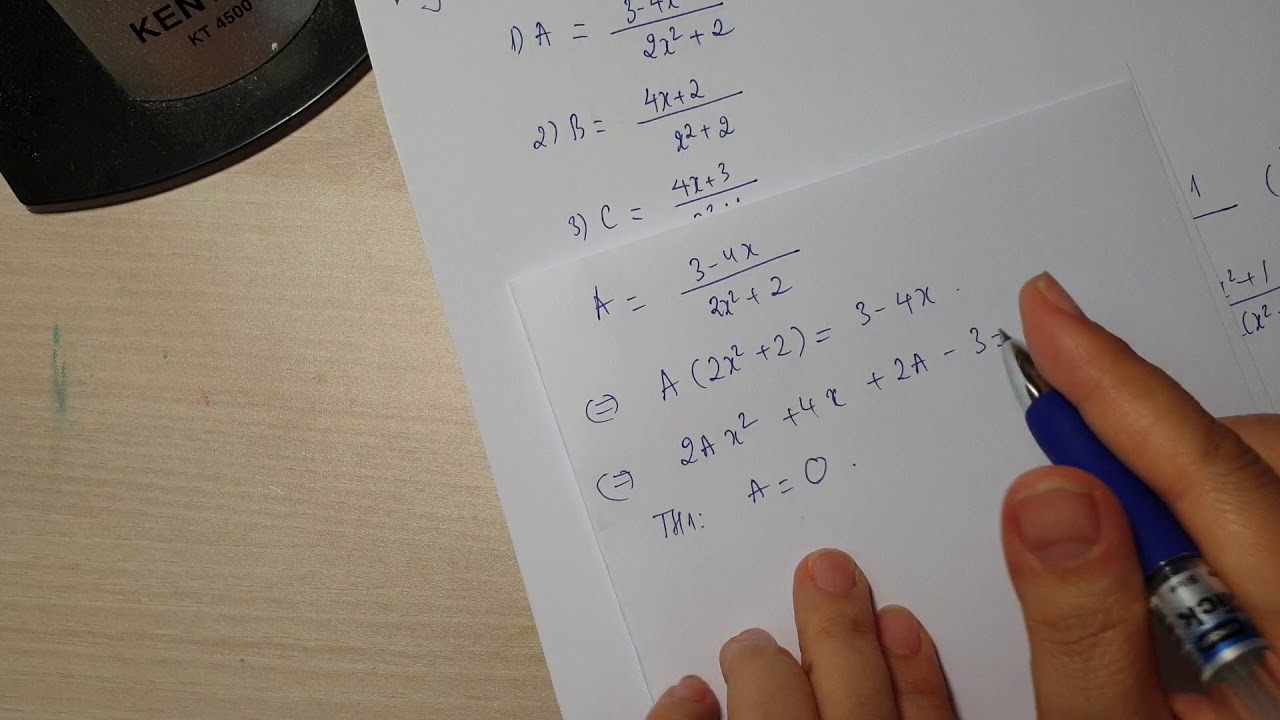 KEN
KT 4500
1) A = (3-4x)/(2x² + 2)
2) B = (4x+2)/(x² + 2)
3) C = 4x+3
A = (3-4x)/(2x² + 2)
⇔ A (2x² + 2) = 3-4x.
⇔ 2Ax² + 4x + 2A - 3 =
TH1: A = 0.
1
x² + 1
(x²